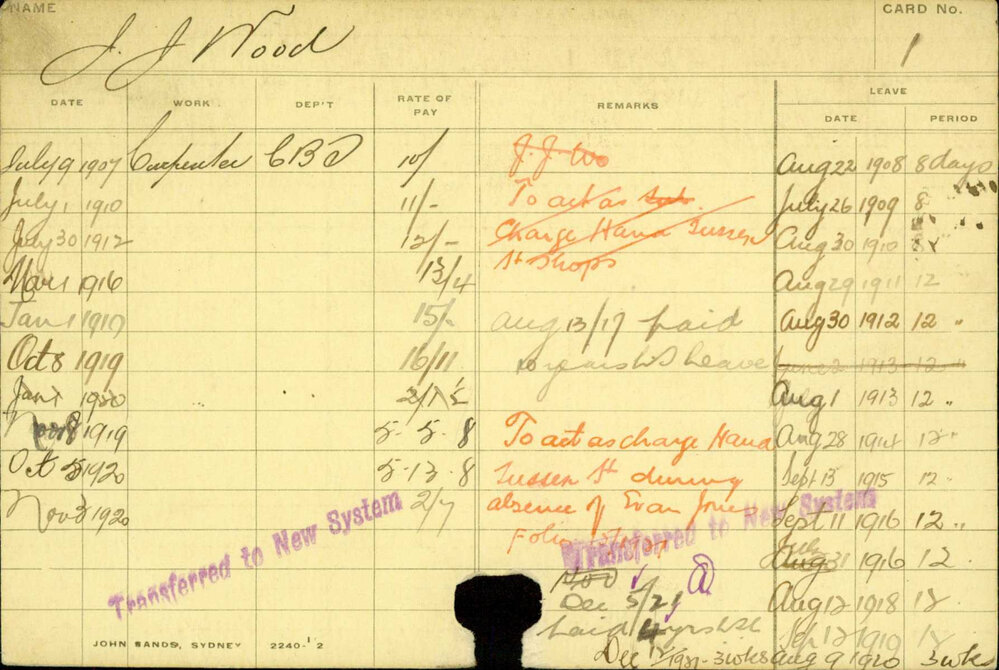 NAME
CARD No.
J. J Wood
1
DATE WORK DEP'T RATE OF PAY REMARKS LEAVE
DATE PERIOD
July 9 1907 Carpenter 10/ Aug 22 1908 8 days
July 1 1910 11/- To act as July 26 1909 8
July 30 1912 12/- Charge Hand Sussex Aug 30 1910
Mar 1 1916 13/4 St Shops Aug 29 1911 12
Jan 1 15/- Aug 13/17 paid Aug 30 1912 12 "
Oct 8 1919 16/11 10 years Leave June 2 1913 12 "
Jan 1 1920 Aug 1 1913 12 "
1919 5-5-8 To act as charge Hand Aug 28 1914 12 "
Oct 5 1920 5-13-8 Sussex St during Sept 13 1915 12 "
Nov 3 1920 2/7 absence of Evan Jones Sept 11 1916 12 "
Transferred to New System
Transferred to New System
July 31 1916 12 "
Dec 5/21 Aug 12 1918 12
paid 4 yrs
Dec 1921 - 3 wks Aug 9 1920 3 wks
JOHN SANDS, SYDNEY 2240-12